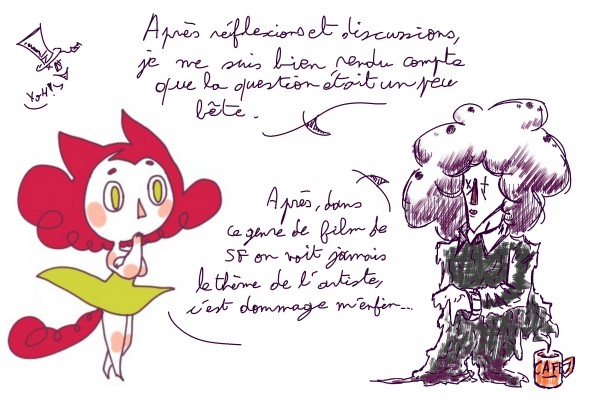 Après réflexions et discussions,
je me suis bien rendu compte
que la question était un peu
bête.
Après, dans
ce genre de film de
SF on voit jamais
le thème de l'artiste,
c'est dommage m'enfin...
CAFE